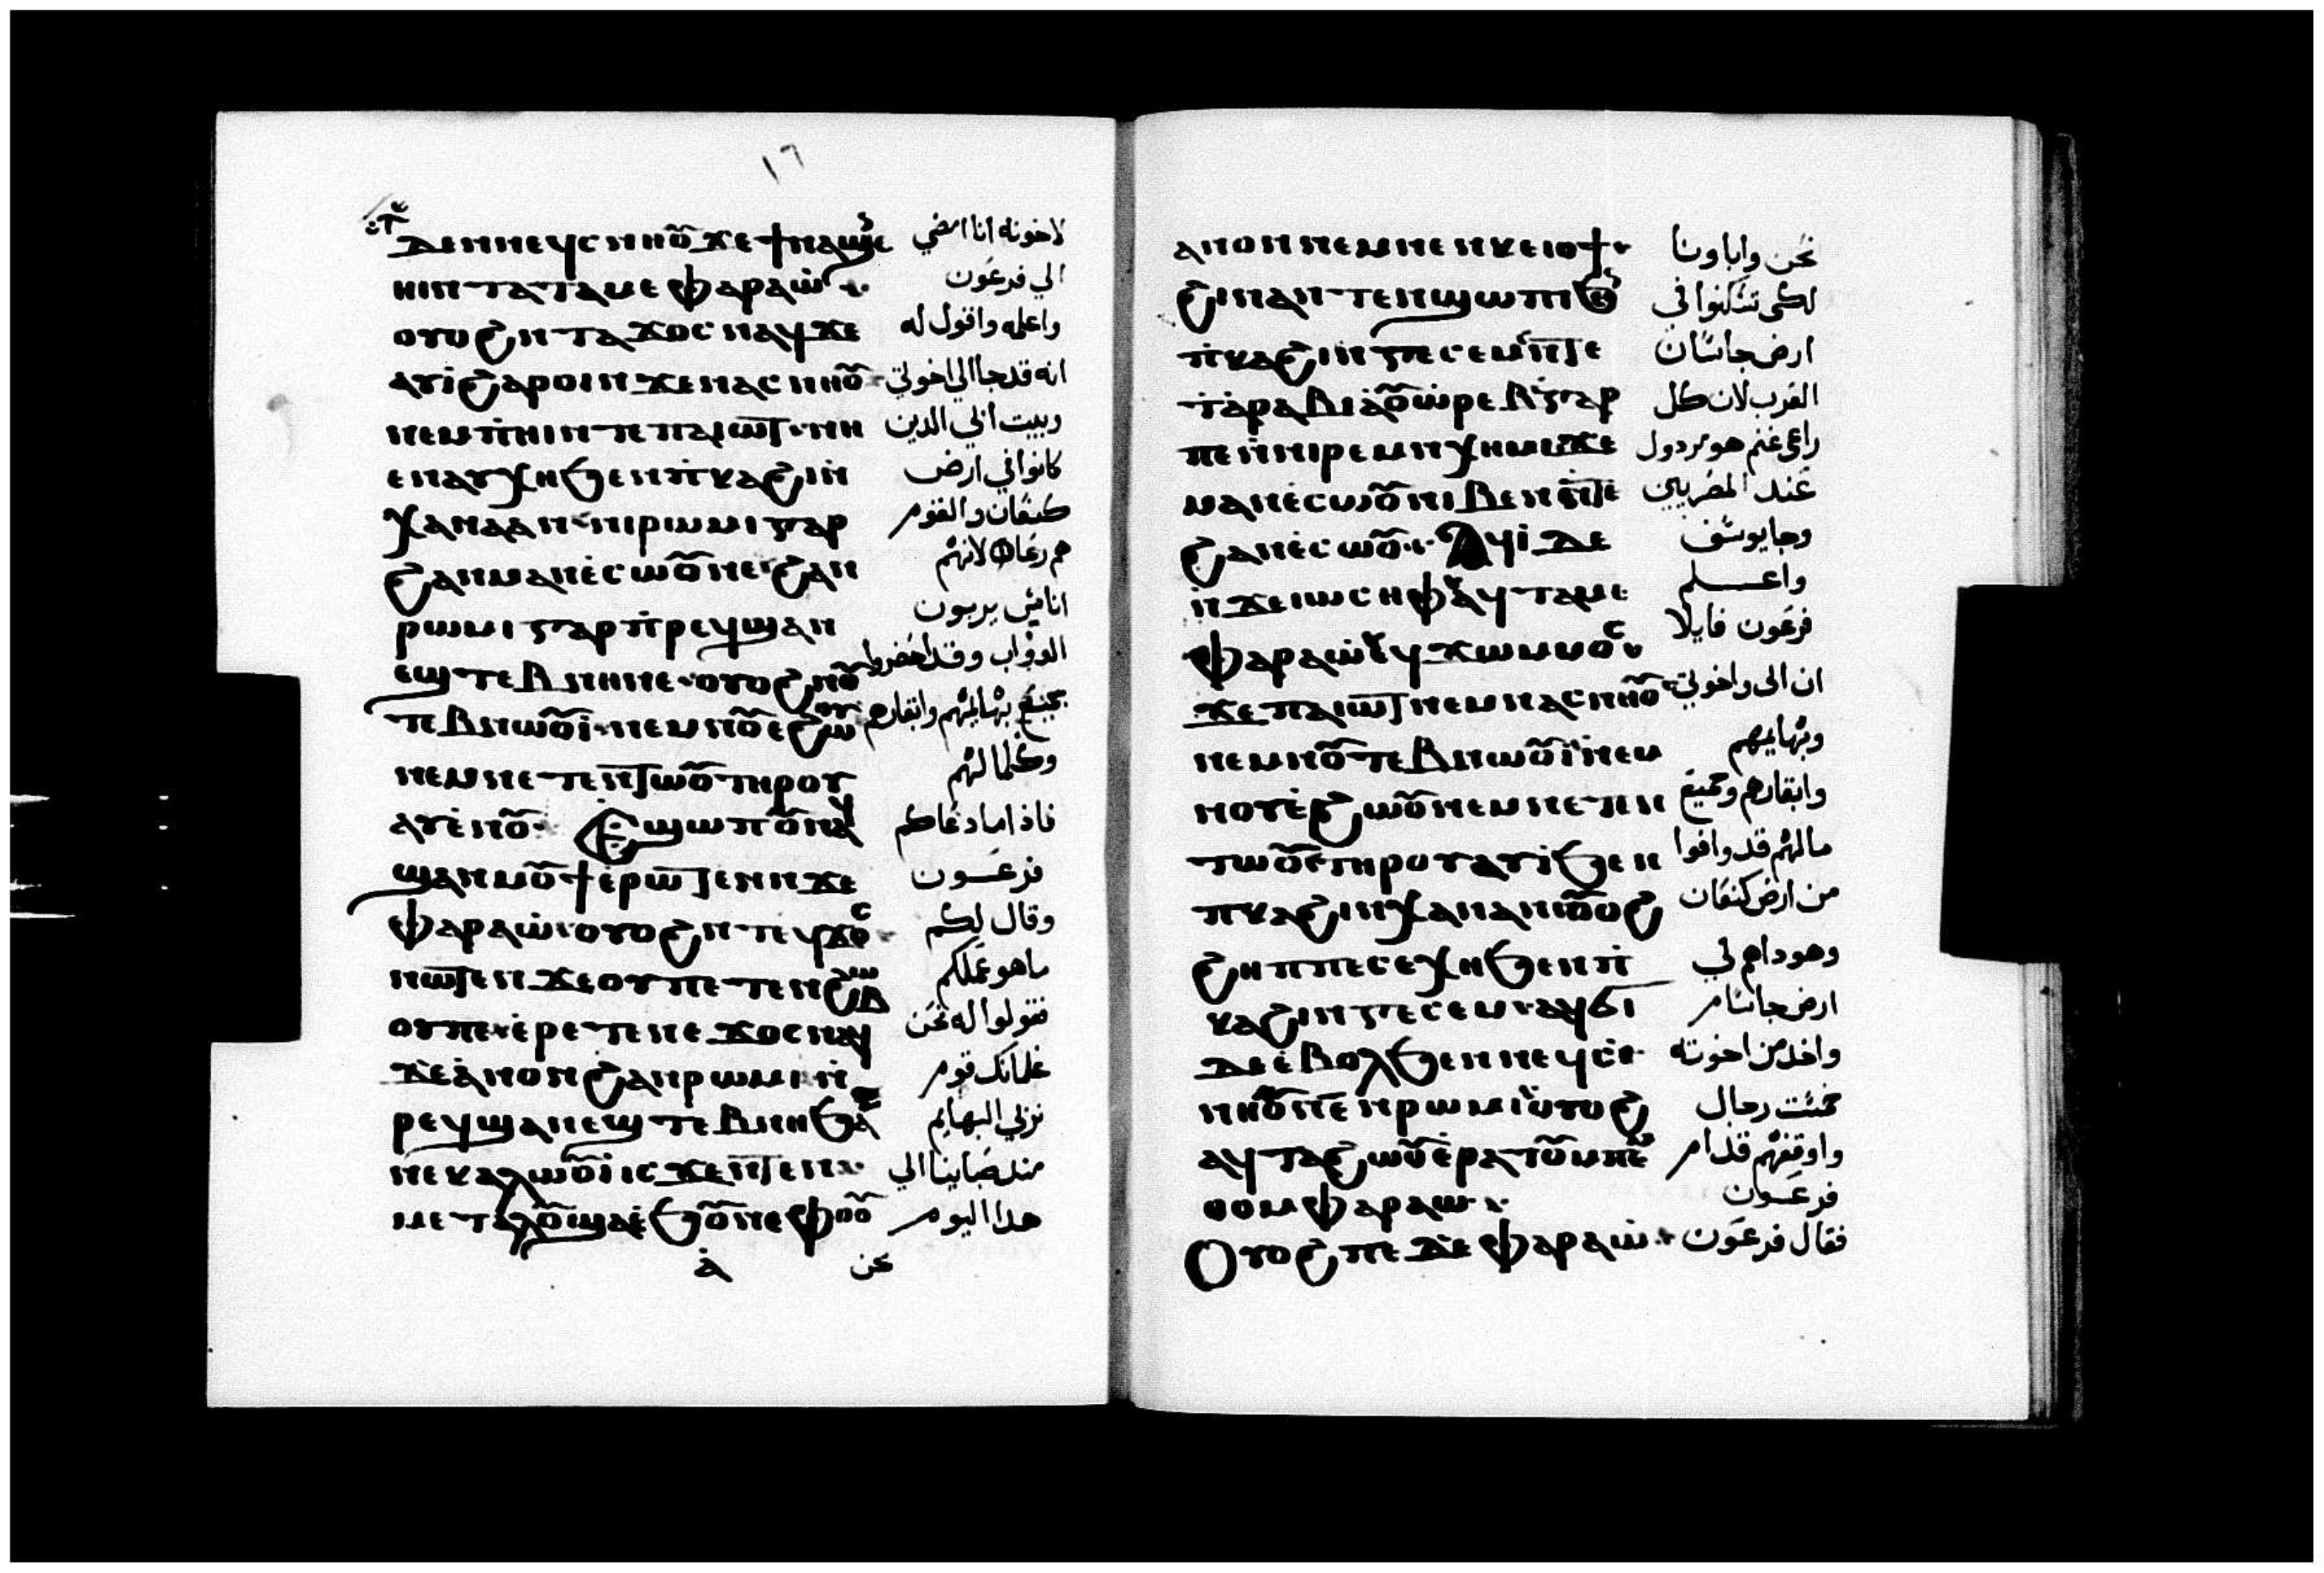 ١٦
ⲇⲉ ⲛⲛⲉϥⲥⲛⲏⲟⲩ ϫⲉ ϯⲛⲁϣⲉ لاخوته انا امضي
ⲛⲏⲓ ⲛⲧⲁⲧⲁⲙⲉ ⲫⲁⲣⲁⲱ الي فرعون
ⲟⲩⲟϩ ⲛⲧⲁϫⲟⲥ ⲛⲁϥ ϫⲉ واعلمه واقول له
ⲁⲩⲓ̇ ϩⲁⲣⲟⲓ ⲛϫⲉ ⲛⲁⲥⲛⲏⲟⲩ انه قد جا الي اخوتي
ⲛⲉⲙ ⲡ̇ⲏⲓ ⲛⲧⲉ ⲡⲁⲓⲱⲧ ⲛⲏ وبيت ابي الدين
ⲉⲛⲁⲩⲭⲏ ϧⲉⲛ ⲡ̇ⲕⲁϩⲓ ⲛ̇ كانوا في ارض
ⲭⲁⲛⲁⲁⲛ ⲛⲓⲣⲱⲙⲓ ⲅⲁⲣ كنعان والقوم
ϩⲁⲛⲙⲁⲛⲉ̇ⲥⲱⲟⲩ ⲛⲉ ϩⲁⲛ هم رعاه لانهم
ⲣⲱⲙⲓ ⲅⲁⲣ ⲛ̇ⲣⲉϥϣⲁⲛ اناس يربون
ⲉϣ ⲧⲉⲃⲛⲏ ⲛⲉ ⲟⲩⲟϩ ⲛⲟⲩ الدواب وقد احضروا
ⲧⲉⲃⲛⲱⲟⲩⲓ̇ ⲛⲉⲙ ⲛⲟⲩⲉϩⲱⲟⲩ جميع بهايمهم وابقارهم
ⲛⲉⲙ ⲛⲉⲧⲉⲛⲧⲱⲟⲩ ⲧⲏⲣⲟⲩ وكلما لهم
ⲁⲩⲉ̇ⲛⲟⲩ Ⲉϣⲱⲡ ⲟⲩⲛ ⲁϥ فاذا ما دعاكم
ϣⲁⲛⲙⲟⲩϯ ⲉ̇ⲣⲱⲧⲉⲛ ⲛϫⲉ فرعون
ⲫⲁⲣⲁⲱ̇ ⲟⲩⲟϩ ⲛⲧⲉϥϫⲟⲥ وقال لكم
ⲛⲱⲧⲉⲛ ϫⲉ ⲟⲩ ⲡⲉ ⲧⲉⲛϩⲱⲃ ما هو عملكم
ⲟⲩⲡⲉ ⲉ̇ⲣⲉⲧⲉⲛⲉ ϫⲟⲥ ⲛⲁϥ فقولوا له نحن
ϫⲉ ⲁ̇ⲛⲟⲛ ϩⲁⲛⲣⲱⲙⲓ ⲛ̇ غلمانك قوم
ⲣⲉϥϣⲁⲛⲉϣ ⲧⲉⲃⲛⲏ ϧⲁ نربي البهايم
ⲛⲉⲕⲁⲗⲱⲟⲩⲓ̇ ⲓⲥϫⲉⲛ ⲧⲉⲛ مند صباينا الي
ⲙⲉⲧⲁⲗⲟⲩ ϣⲁⲉ̇ϧⲟⲩⲛ ⲉⲫⲟⲟⲩ هدا اليوم
ⲁ̇ نحن
ⲁⲛⲟⲛ ⲛⲉⲙ ⲛⲉⲛⲕⲉⲓⲟϯ نحن واباونا
ϩⲓⲛⲁ ⲛⲧⲉⲛϣⲱⲡⲓ ϧⲉⲛ لكى تسكنوا في
ⲡ̇ⲕⲁϩⲓ ⲛⲅⲉⲥⲉⲙ ⲛⲧⲉ ارض جاسان
ϯⲁ̇ⲣⲁⲃⲓⲁ̇ ⲟⲩⲱ̇ⲣⲉⲃ ⲅⲁⲣ العرب لان كل
ⲡⲉ ⲛ̇ⲛⲓⲣⲉⲙⲛⲭⲏⲙⲓ ϫⲉ راعى غنم هو مردول
ⲙⲁⲛⲉ̇ⲥⲱⲟⲩ ⲛⲓⲃⲉⲛ ⲛⲧⲉ عند المصريين
ϩⲁⲛⲉ̇ⲥⲱⲟⲩ Ⲁϥⲓ̇ ⲇⲉ وجا يوسف
ⲛ̇ϫⲉ ⲓⲱⲥⲏⲫ ⲁϥⲧⲁⲙⲉ واعلم
ⲫⲁⲣⲁⲱ̇ ⲉϥϫⲱⲙⲙⲟⲥ فرعون قايلا
ϫⲉ ⲡⲁⲓⲱⲧ ⲛⲉⲙ ⲛⲁⲥⲛⲏⲟⲩ ان ابى واخوتي
ⲛⲉⲙ ⲛⲟⲩⲧⲉⲃⲛⲱⲟⲩⲓ̇ ⲛⲉⲙ وبهايمهم
ⲛⲟⲩⲉ̇ϩⲱⲟⲩ ⲛⲉⲙ ⲛⲉⲧⲉⲛ وابقارهم وجميع
ⲧⲱⲟⲩ ⲧⲏⲣⲟⲩ ⲁⲩⲓ̇ ϧⲉⲛ ما لهم قد وافوا
ⲡⲕⲁϩⲓ ⲛⲭⲁⲛⲁⲛ ⲟⲩⲟϩ من ارض كنعان
ϩⲏⲡⲡⲉ ⲥⲉⲭⲏ ϧⲉⲛ ⲡ̇ وهوداهم في
ⲕⲁϩⲓ ⲛⲅⲉⲥⲉⲙ ⲁϥϭⲓ ارض جاسام
ⲇⲉ ⲉ̇ⲃⲟⲗ ϧⲉⲛ ⲛⲉϥⲥ̇ واخد من اخوته
ⲛⲏⲟⲩ ⲛ̅ⲉ̅ ⲛⲣⲱⲙⲓ ⲟⲩⲟϩ خمست رجال
ⲁϥⲧⲁϩⲱⲟⲩ ⲉ̇ⲣⲁⲧⲟⲩ ⲙⲡⲉ واوقفهم قدام
ⲙⲑⲟ ⲙⲫⲁⲣⲁⲱ فرعون
Ⲟⲩⲟϩ ⲡⲉϫⲉ ⲫⲁⲣⲁⲱ̇ فقال فرعون